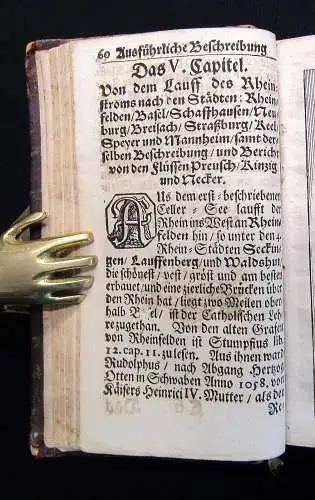 60 Ausführliche Beschreibung
Das V. Capitel.
Von dem Lauff des Rhein-
stroms nach den Städten: Rhein-
felden/ Basel/ Schaffhausen/ Neu-
burg/ Breisach/ Straßburg/ Keel/
Speyer und Mannheim/ samt der-
selben Beschreibung/ und Bericht
von den Flüssen Preusch/ Kinzig
und Necker.
AUs dem erst-beschriebenen
Celler-See laufft der
Rhein ins West an Rhein-
felden hin/ so unter den 4.
Rhein-Städten Seckin-
gen/ Lauffenberg/ und Waldshut/
die schönest/ vest/ gröst und am besten
erbauet/ und eine zierliche Brücken über
den Rhein hat/ liegt zwo Meilen ober-
halb Basel/ ist der Catholischen Leh-
re zugethan. Von den alten Grafen
von Rheinfelden ist Stumpfius lib.
12. cap. 11. zu lesen. Aus ihnen ward
Rudolphus/ nach Abgang Hertzog
Otten in Schwaben Anno 1058. von
Käisers Heinrici IV. Mutter/ als der
Re-